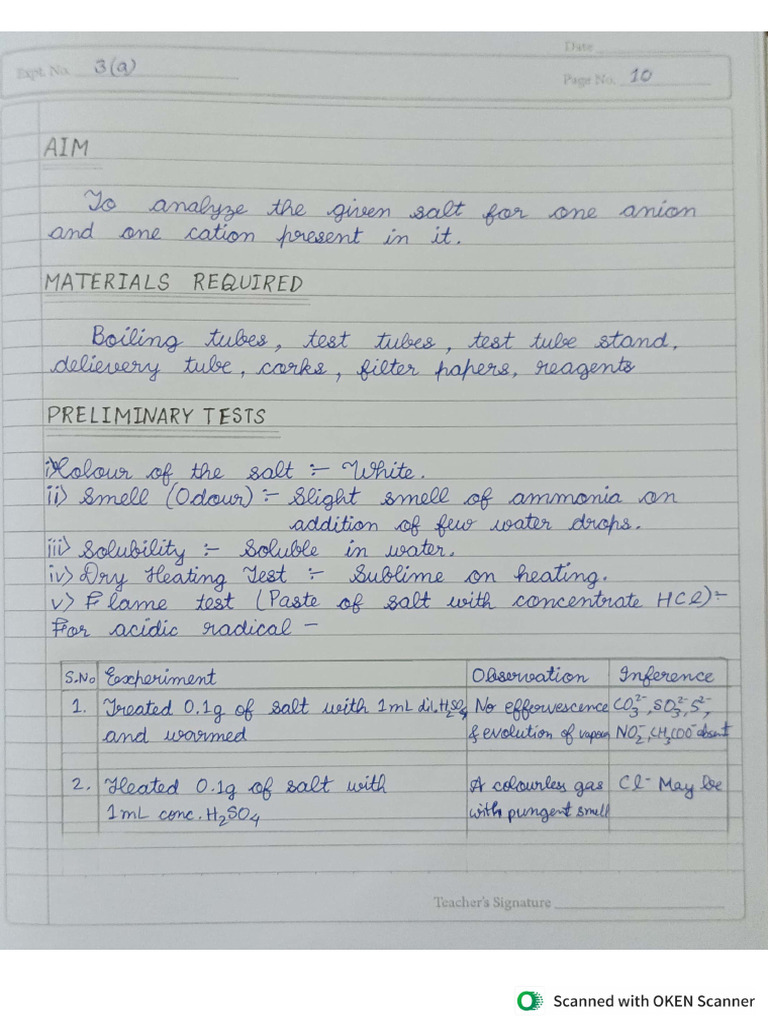 Date
Expt. No. 3(a)
Page No. 10
AIM
To analyze the given salt for one anion
and one cation present in it.
MATERIALS REQUIRED
Boiling tubes, test tubes, test tube stand,
delievery tube, corks, filter papers, reagents
PRELIMINARY TESTS
i) Colour of the salt :- White.
ii) Smell (Odour) :- Slight smell of ammonia on
addition of few water drops.
iii) Solubility :- Soluble in water.
iv) Dry Heating Test :- Sublime on heating.
v) Flame test (Paste of salt with concentrate HCl):-
For acidic radical -
S.No Experiment Observation Inference
1. Treated 0.1g of salt with 1mL dil.H₂SO₄ No effervescence CO₃²⁻, SO₃²⁻, S²⁻,
and warmed & evolution of vapours NO₂⁻, CH₃COO⁻ absent
2. Heated 0.1g of salt with A colourless gas Cl⁻ May be
1mL conc. H₂SO₄ with pungent smell
Teacher's Signature
Scanned with OKEN Scanner